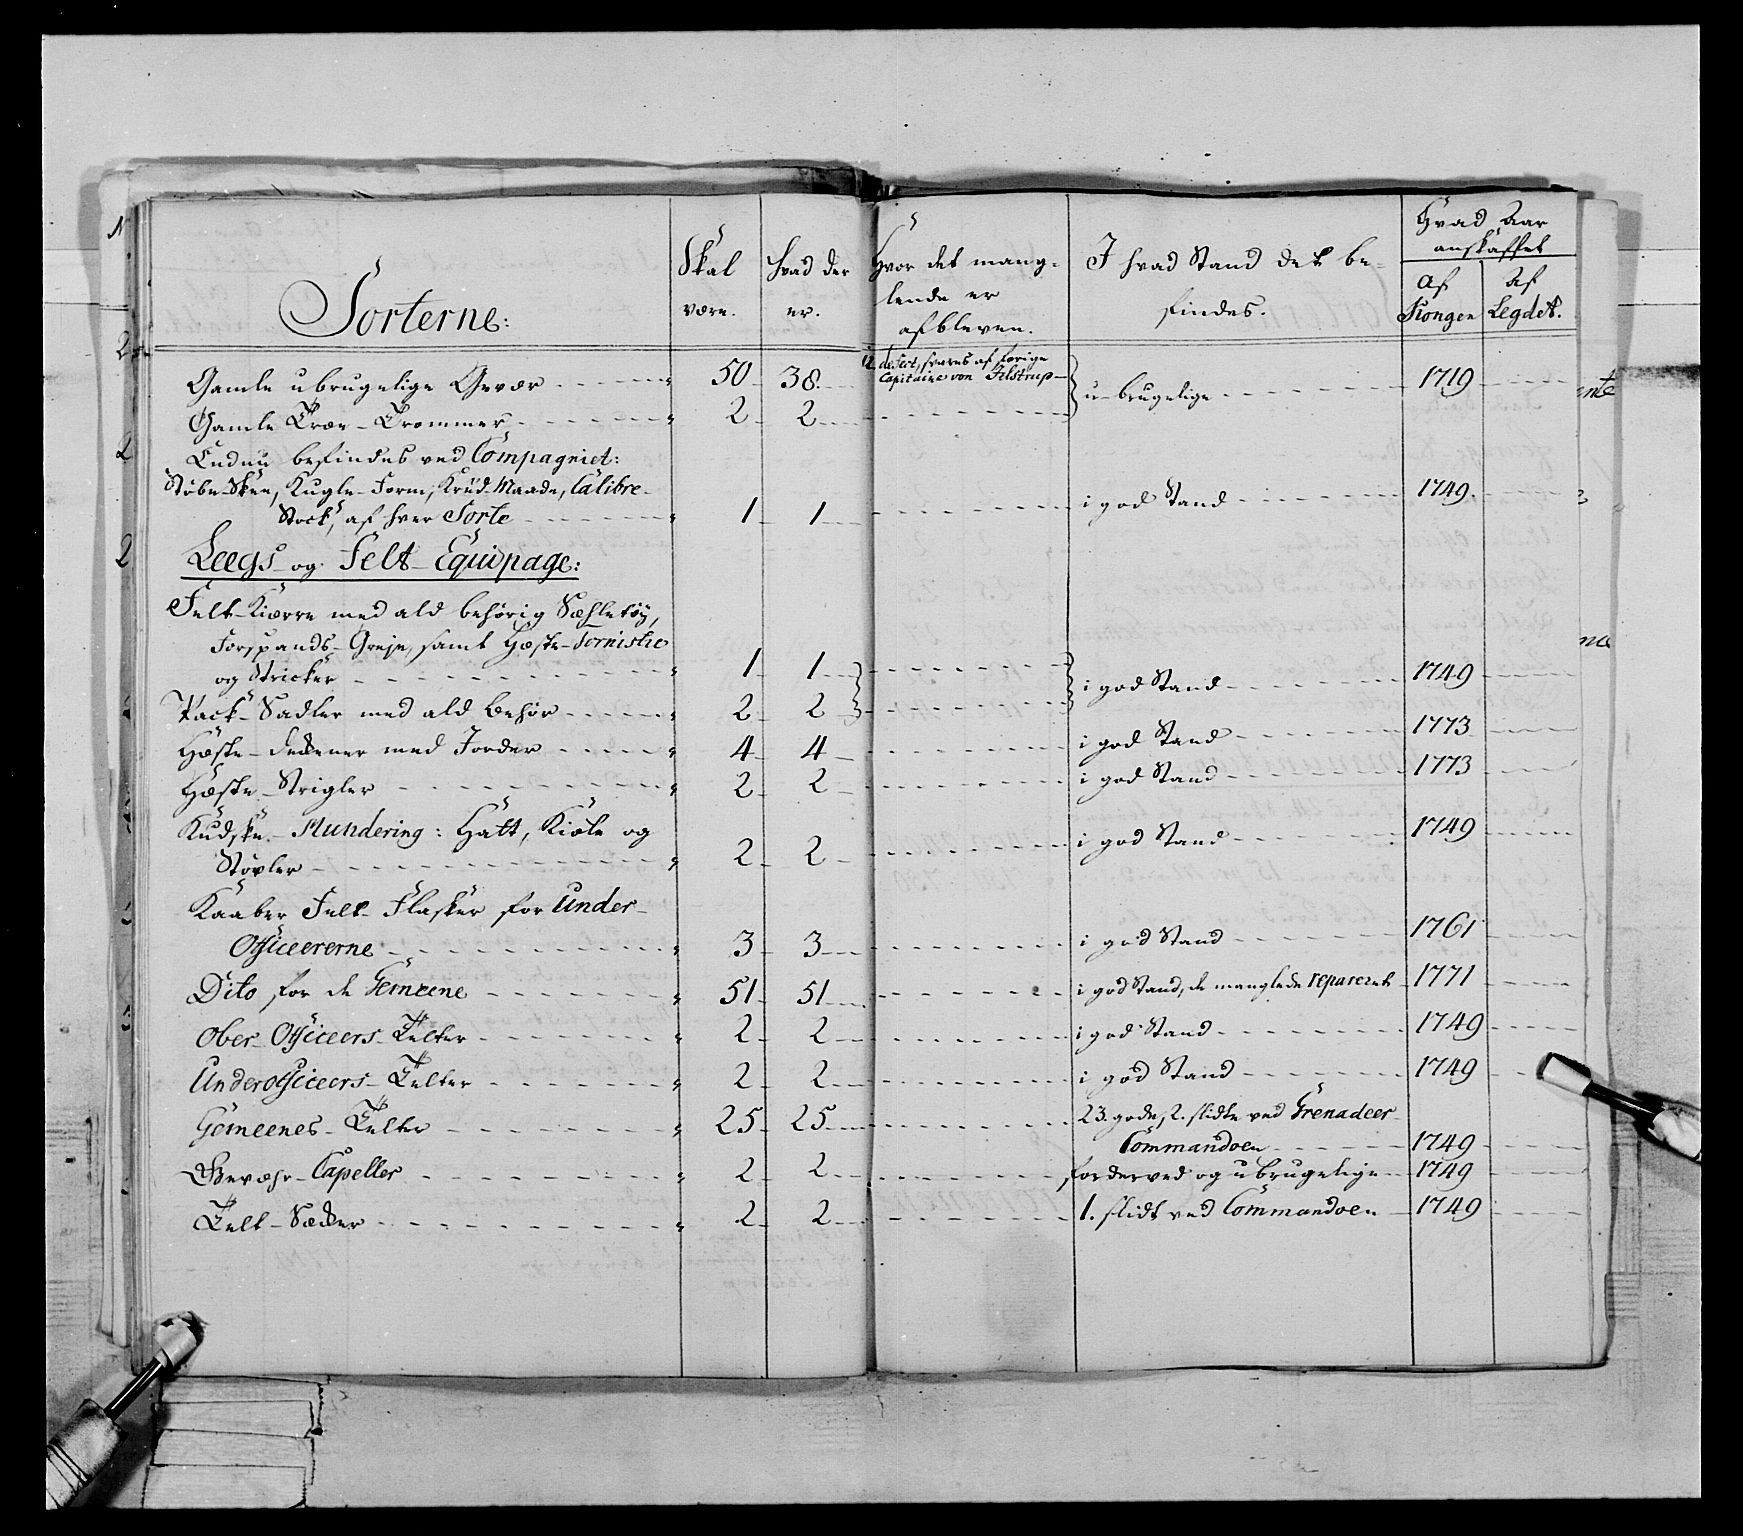 Sorterne:
Skal være.
hvad der er.
Hvor det mang-
lende er
afbleven.
I hvad Stand det be-
findes.
Hvad Aar
anskaffet
af Kongen
af Legdet.
Gamle ubrugelige Gevær 50 38 12 desert, svares af forige
Capitaine von u-brugelige 1719
Gamle Træe-Trommer 2 2
Endnu befindes ved Compagniet:
Støbe-Skee, Kugle-Form, Krud-Maade, Calibre-
Stock, af hver Sorte 1 1 i god Stand 1749.
Leegs- og Felt-Equipage:
Felt-Kiærre med ald behørig Sæhletöy,
Forspands-Greje, samt Hæste-Tornister
og Stricker 1 1 i god Stand 1749
Pack-Sadler med ald behør 2 2
Hæste-deckener med Jorder 4 4 i god Stand 1773
Hæste-Strigler 2 2 i god Stand 1773
Kudske-Mundering: Hatt, Kiole og
Støvler 2 2 i god Stand 1749
Kaaber Felt-Flasker for Under-
Officeererne 3 3 i god Stand 1761
Dito for de Gemeene 51 51 i god Stand, de manglede repareret 1771
Ober-Officeers-Telter 2 2 i god Stand 1749
Underofficeers-Telter 2 2 i god Stand 1749
Gemeenes-Telter 25 25 23. gode, 2. slidte ved Grenadeer-
Commandoen 1749
Gevæhr-Capeller 2 2 forderved og ubrugelige 1749
Telt-Sæcker 2 2 1. slidt ved Commandoen 1749